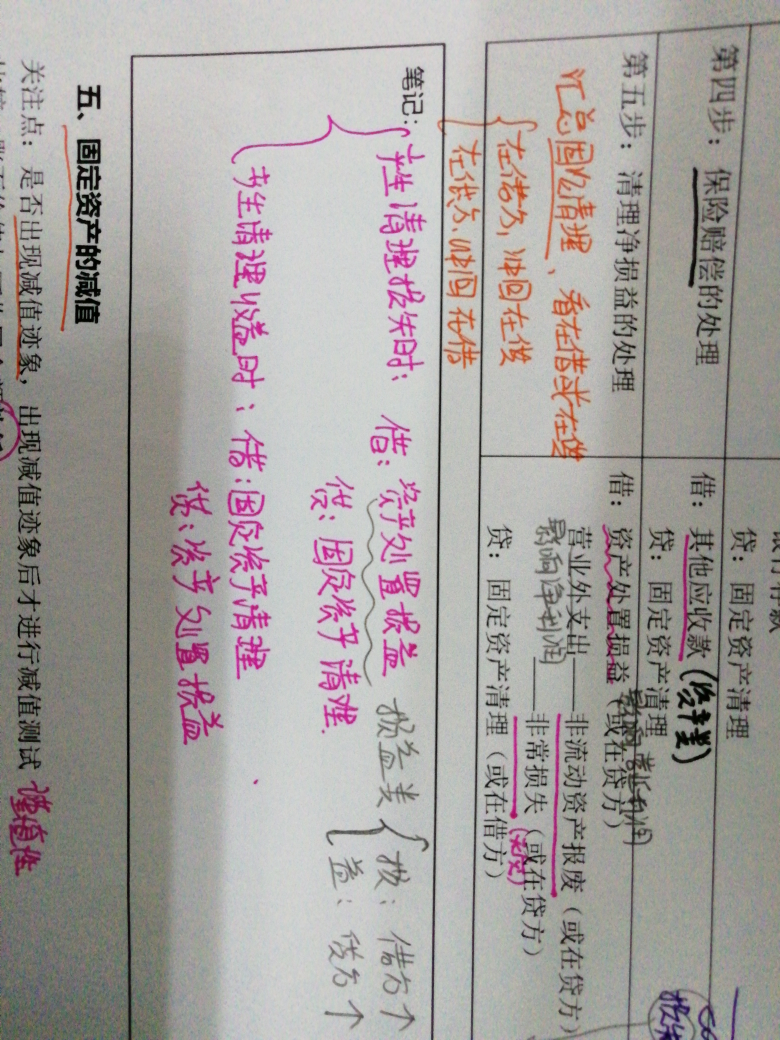 银行存款
贷：固定资产清理
第四步：保险赔偿的处理
借：其他应收款（资产类）
贷：固定资产清理
第五步：清理净损益的处理
借：资产处置损益（或在贷方）
影响营业利润
营业外支出——非流动资产报废（或在贷方）
影响净利润
——非常损失（或在贷方）
贷：固定资产清理（或在借方）
汇总固定清理、看在借或在贷
在借方，冲回在贷
在贷方，冲回在借
损失
笔记：
产生清理损失时：借：资产处置损益
贷：固定资产清理.
损益类
损：借方个
益：贷方个
产生清理收益时、借：固定资产清理
贷：资产处置损益
五、固定资产的减值
关注点：是否出现减值迹象，出现减值迹象后才进行减值测试 谨慎性